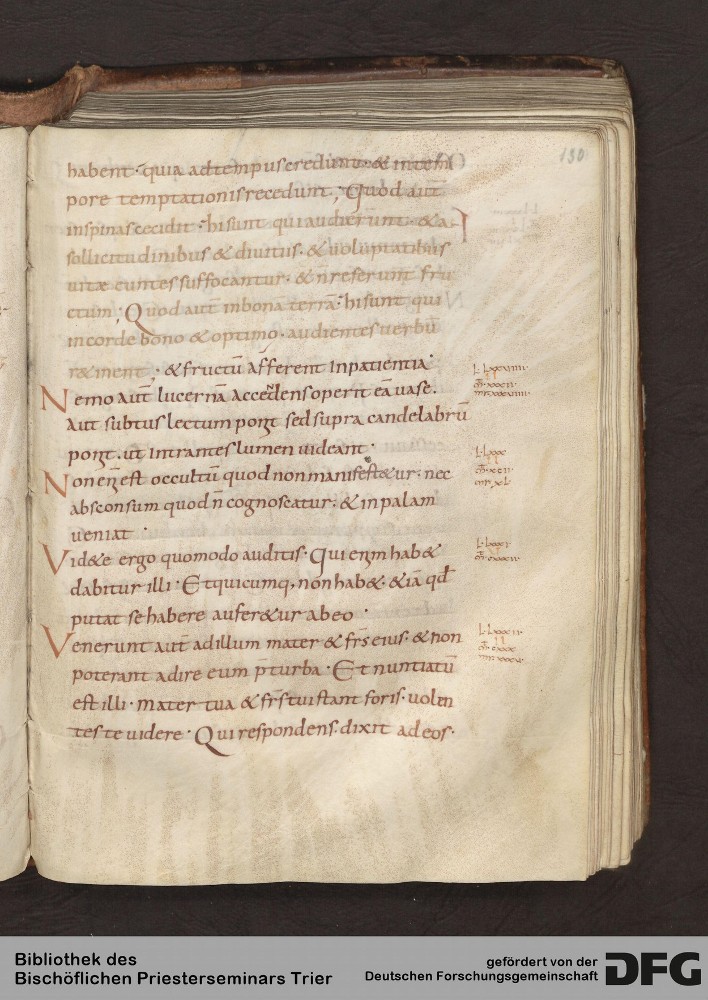 130
habent · quia adtempus credunt · & intem
pore temptationis recedunt ; Quod aut̄
inspinas cecidit · hi sunt qui audierunt · & a
sollicitudinibus & divitiis · & uoluptatibus
uitæ euntes suffocantur · & n̄ referunt fru
ctum ; Quod aut̄ inbonā terrā · hi sunt qui
incorde bono & optimo · audientes uerbū
r&inent · & fructū afferent Inpatientia ·
Nemo aut̄ lucernā accendens operit eā uase ·
Aut subtus lectum ponit sed supra candelabrū
ponit · ut Intrantes lumen uideant ·
Non enim est occultū quod non manifest&ur · nec
absconsum quod n̄ cognoscatur · & inpalam
ueniat ·
Vid&e ergo quomodo auditis · Qui enim hab&
dabitur illi · Et quicumq, non hab& · &iā qd̄
putat se habere aufer&ur abeo ·
Venerunt aut̄ adillum mater & frs̄ eius · & non
poterant adire eum p̄ turba · Et nuntiatū
est illi · mater tua & frs̄ tui stant foris · uolen
tes te uidere · Qui respondens · dixit adeos ·
Bibliothek des
Bischöflichen Priesterseminars Trier
gefördert von der
Deutschen Forschungsgemeinschaft
DFG